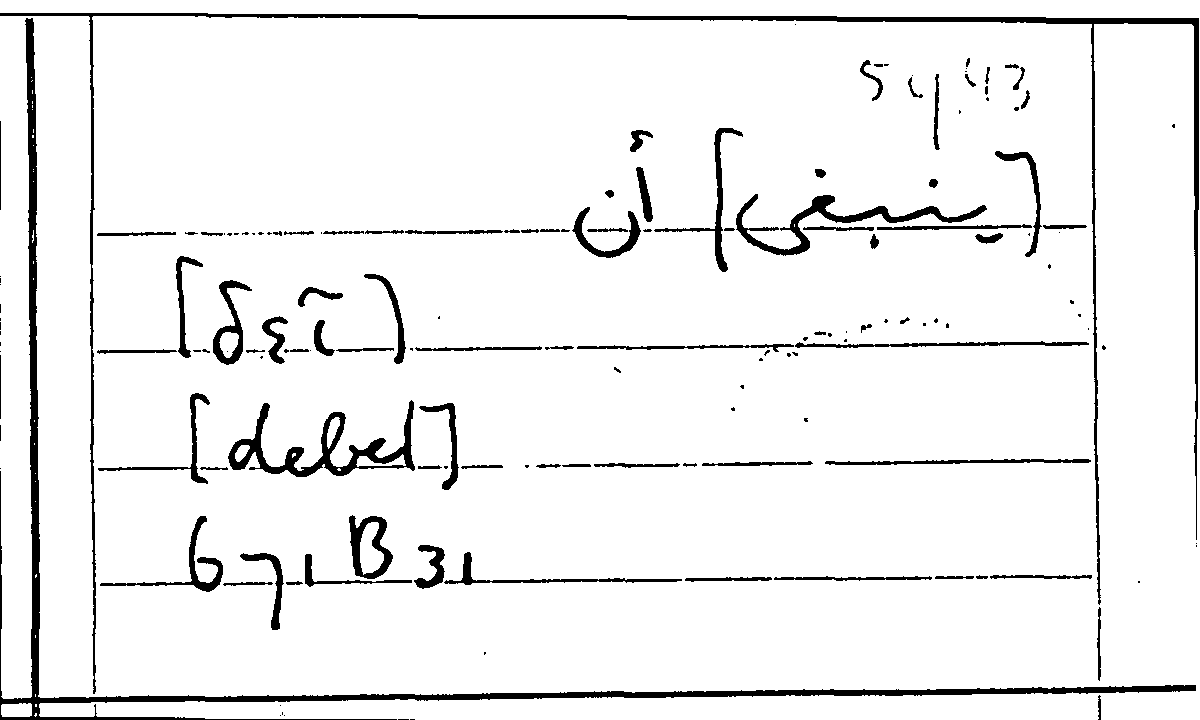 [ينبغى] أن
[δεῖ]
[debet]
671 B 31